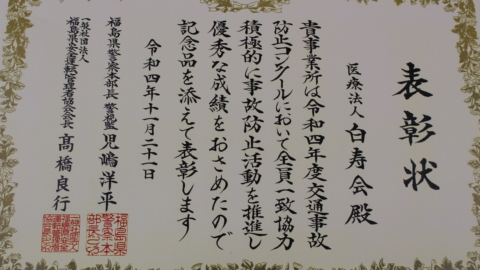 表彰状
医療法人 白寿会殿
貴事業所は令和四年度交通事故
防止コンクールにおいて全員一致協力
積極的に事故防止活動を推進し
優秀な成績をおさめたので
記念品を添えて表彰します
令和四年十一月二十一日
福島県警察本部長 警視監 児嶋洋平
一般社団法人
福島県安全運転管理者協会会長 髙橋良行
福島県
警察本
部長之印